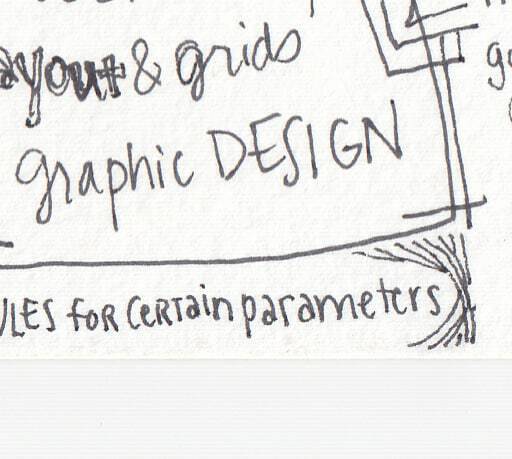 ayout & grids
graphic DESIGN
ULES FOR CERTain parameters